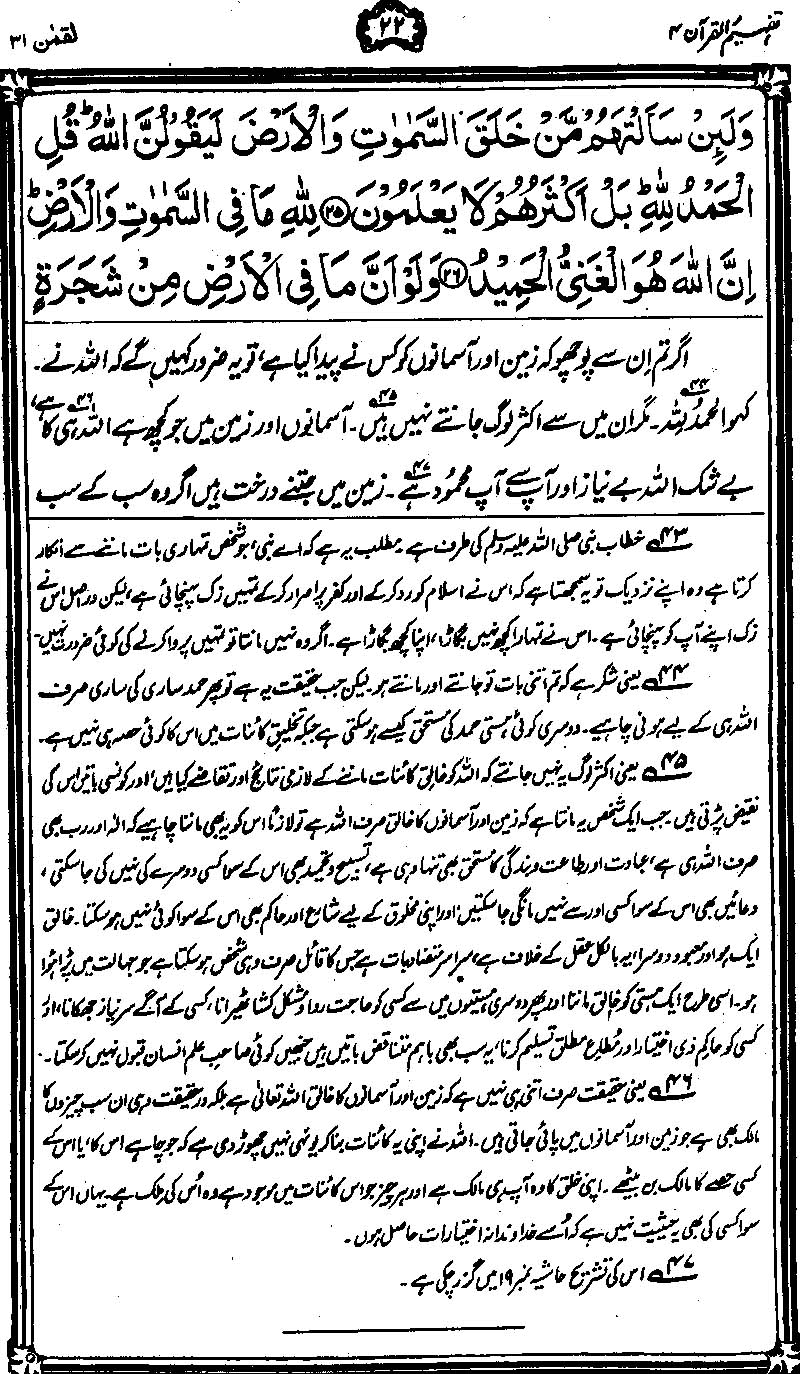 تفہیم القرآن ۴
۲۲
لقمٰن ۳۱
وَلَئِنْ سَاَلْتَهُمْ مَّنْ خَلَقَ السَّمٰوٰتِ وَالْاَرْضَ لَيَقُوْلُنَّ اللّٰهُ ؕ قُلِ
الْحَمْدُ لِلّٰهِ ؕ بَلْ اَكْثَرُهُمْ لَا يَعْلَمُوْنَ ۝۲۵ لِلّٰهِ مَا فِى السَّمٰوٰتِ وَالْاَرْضِ ؕ
اِنَّ اللّٰهَ هُوَ الْغَنِىُّ الْحَمِيْدُ ۝۲۶ وَلَوْ اَنَّ مَا فِى الْاَرْضِ مِنْ شَجَرَةٍ
اگر تم اِن سے پوچھو کہ زمین اور آسمانوں کو کس نے پیدا کیا ہے، تو یہ ضرور کہیں گے کہ اللہ نے۔
کہو الحمدُ للہ۔ ۴۴ مگر ان میں سے اکثر لوگ جانتے نہیں ہیں۔ ۴۵ آسمانوں اور زمین میں جو کچھ ہے اللہ ہی کا ہے، ۴۶
بے شک اللہ بے نیاز اور آپ سے آپ محمود ہے۔ ۴۷ زمین میں جتنے درخت ہیں اگر وہ سب کے سب
۴۳ خطاب نبی صلی اللہ علیہ وسلم کی طرف ہے۔ مطلب یہ ہے کہ اے نبی، جو شخص تمہاری بات ماننے سے انکار
کرتا ہے وہ اپنے نزدیک تو یہ سمجھتا ہے کہ اس نے اسلام کو رد کر کے اور کفر پر اصرار کر کے تمہیں زک پہنچائی ہے، لیکن دراصل اس نے
زک اپنے آپ کو پہنچائی ہے۔ اس نے تمہارا کچھ نہیں بگاڑا، اپنا کچھ بگاڑا ہے۔ اگر وہ نہیں مانتا تو تمہیں پروا کرنے کی کوئی ضرورت نہیں۔
۴۴ یعنی شکر ہے کہ تم اتنی بات تو جانتے اور مانتے ہو۔ لیکن جب حقیقت یہ ہے تو پھر حمد ساری کی ساری صرف
اللہ ہی کے لیے ہونی چاہیے۔ دوسری کوئی ہستی حمد کی مستحق کیسے ہو سکتی ہے جبکہ تخلیق کائنات میں اس کا کوئی حصہ ہی نہیں ہے۔
۴۵ یعنی اکثر لوگ یہ نہیں جانتے کہ اللہ کو خالقِ کائنات ماننے کے لازمی نتائج اور تقاضے کیا ہیں، اور کونسی باتیں اس کی
نقیض پڑتی ہیں۔ جب ایک شخص یہ مانتا ہے کہ زمین اور آسمانوں کا خالق صرف اللہ ہے تو لازماً اس کو یہ بھی ماننا چاہیے کہ الٰہ اور رب بھی
صرف اللہ ہی ہے، عبادت اور طاعت و بندگی کا مستحق بھی تنہا وہی ہے، تسبیح و تحمید بھی اس کے سوا کسی دوسرے کی نہیں کی جا سکتی،
دعائیں بھی اس کے سوا کسی اور سے نہیں مانگی جا سکتیں، اور اپنی مخلوق کے لیے شارع اور حاکم بھی اس کے سوا کوئی نہیں ہو سکتا۔ خالق
ایک ہو اور معبود دوسرا، یہ بالکل عقل کے خلاف ہے، سراسر متضاد بات ہے جس کا قائل صرف وہی شخص ہو سکتا ہے جو جہالت میں پڑا ہوا
ہو۔ اسی طرح ایک ہستی کو خالق ماننا اور پھر دوسری ہستیوں میں سے کسی کو حاجت روا و مشکل کشا ٹھیرانا، کسی کے آگے سر نیاز جھکانا، اور
کسی کو حاکمِ ذی اختیار اور مُطاعِ مطلق تسلیم کرنا، یہ سب بھی باہم متناقض باتیں ہیں جنھیں کوئی صاحبِ علم انسان قبول نہیں کر سکتا۔
۴۶ یعنی حقیقت صرف اتنی ہی نہیں ہے کہ زمین اور آسمانوں کا خالق اللہ تعالیٰ ہے بلکہ درحقیقت وہی ان سب چیزوں کا
مالک بھی ہے جو زمین اور آسمانوں میں پائی جاتی ہیں۔ اللہ نے اپنی یہ کائنات بنا کر یونہی نہیں چھوڑ دی ہے کہ جو چاہے اس کا، یا اس کے
کسی حصے کا مالک بن بیٹھے۔ اپنی خلق کا وہ آپ ہی مالک ہے اور ہر چیز جو اس کائنات میں موجود ہے وہ اُس کی مِلک ہے۔ یہاں اس کے
سوا کسی کی بھی یہ حیثیت نہیں ہے کہ اُسے خداوندانہ اختیارات حاصل ہوں۔
۴۷ اس کی تشریح حاشیہ نمبر ۱۹ میں گزر چکی ہے۔